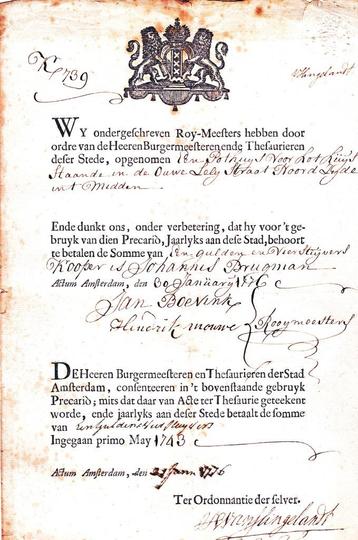 N 739
v Slingelandt
WY ondergeschreven Roy-Meesters hebben door
ordre van de Heeren Burgermeesteren ende Thesaurieren
deser Stede, opgenomen Een Pothuys Voor Het Huijs
Staande in de Ouwe Lely Straat Noord Zyde
int Midden
Ende dunkt ons, onder verbetering, dat hy voor 't ge-
bruyk van dien Precario, Jaarlyks aan dese Stad, behoort
te betalen de Somme van Een gulden en Vier Stuyvers
Kooper is Johannis Brugman
Actum Amsterdam, den 30 January 1776
Jan Boevink
Hindrik mouwe Rooymeesters
DE Heeren Burgermeesteren en Thesaurieren der Stad
Amsterdam, consenteeren in 't bovenstaande gebruyk
Precario; mits dat daar van Acte ter Thesaurie geteekent
worde, ende jaarlyks aan deser Stede betaalt de somme
van Een Gulden Vier Stuyvers
Ingegaan primo May 1743
Actum Amsterdam, den 31 Janu 1776
Ter Ordonnantie der selver.
v Slingelandt